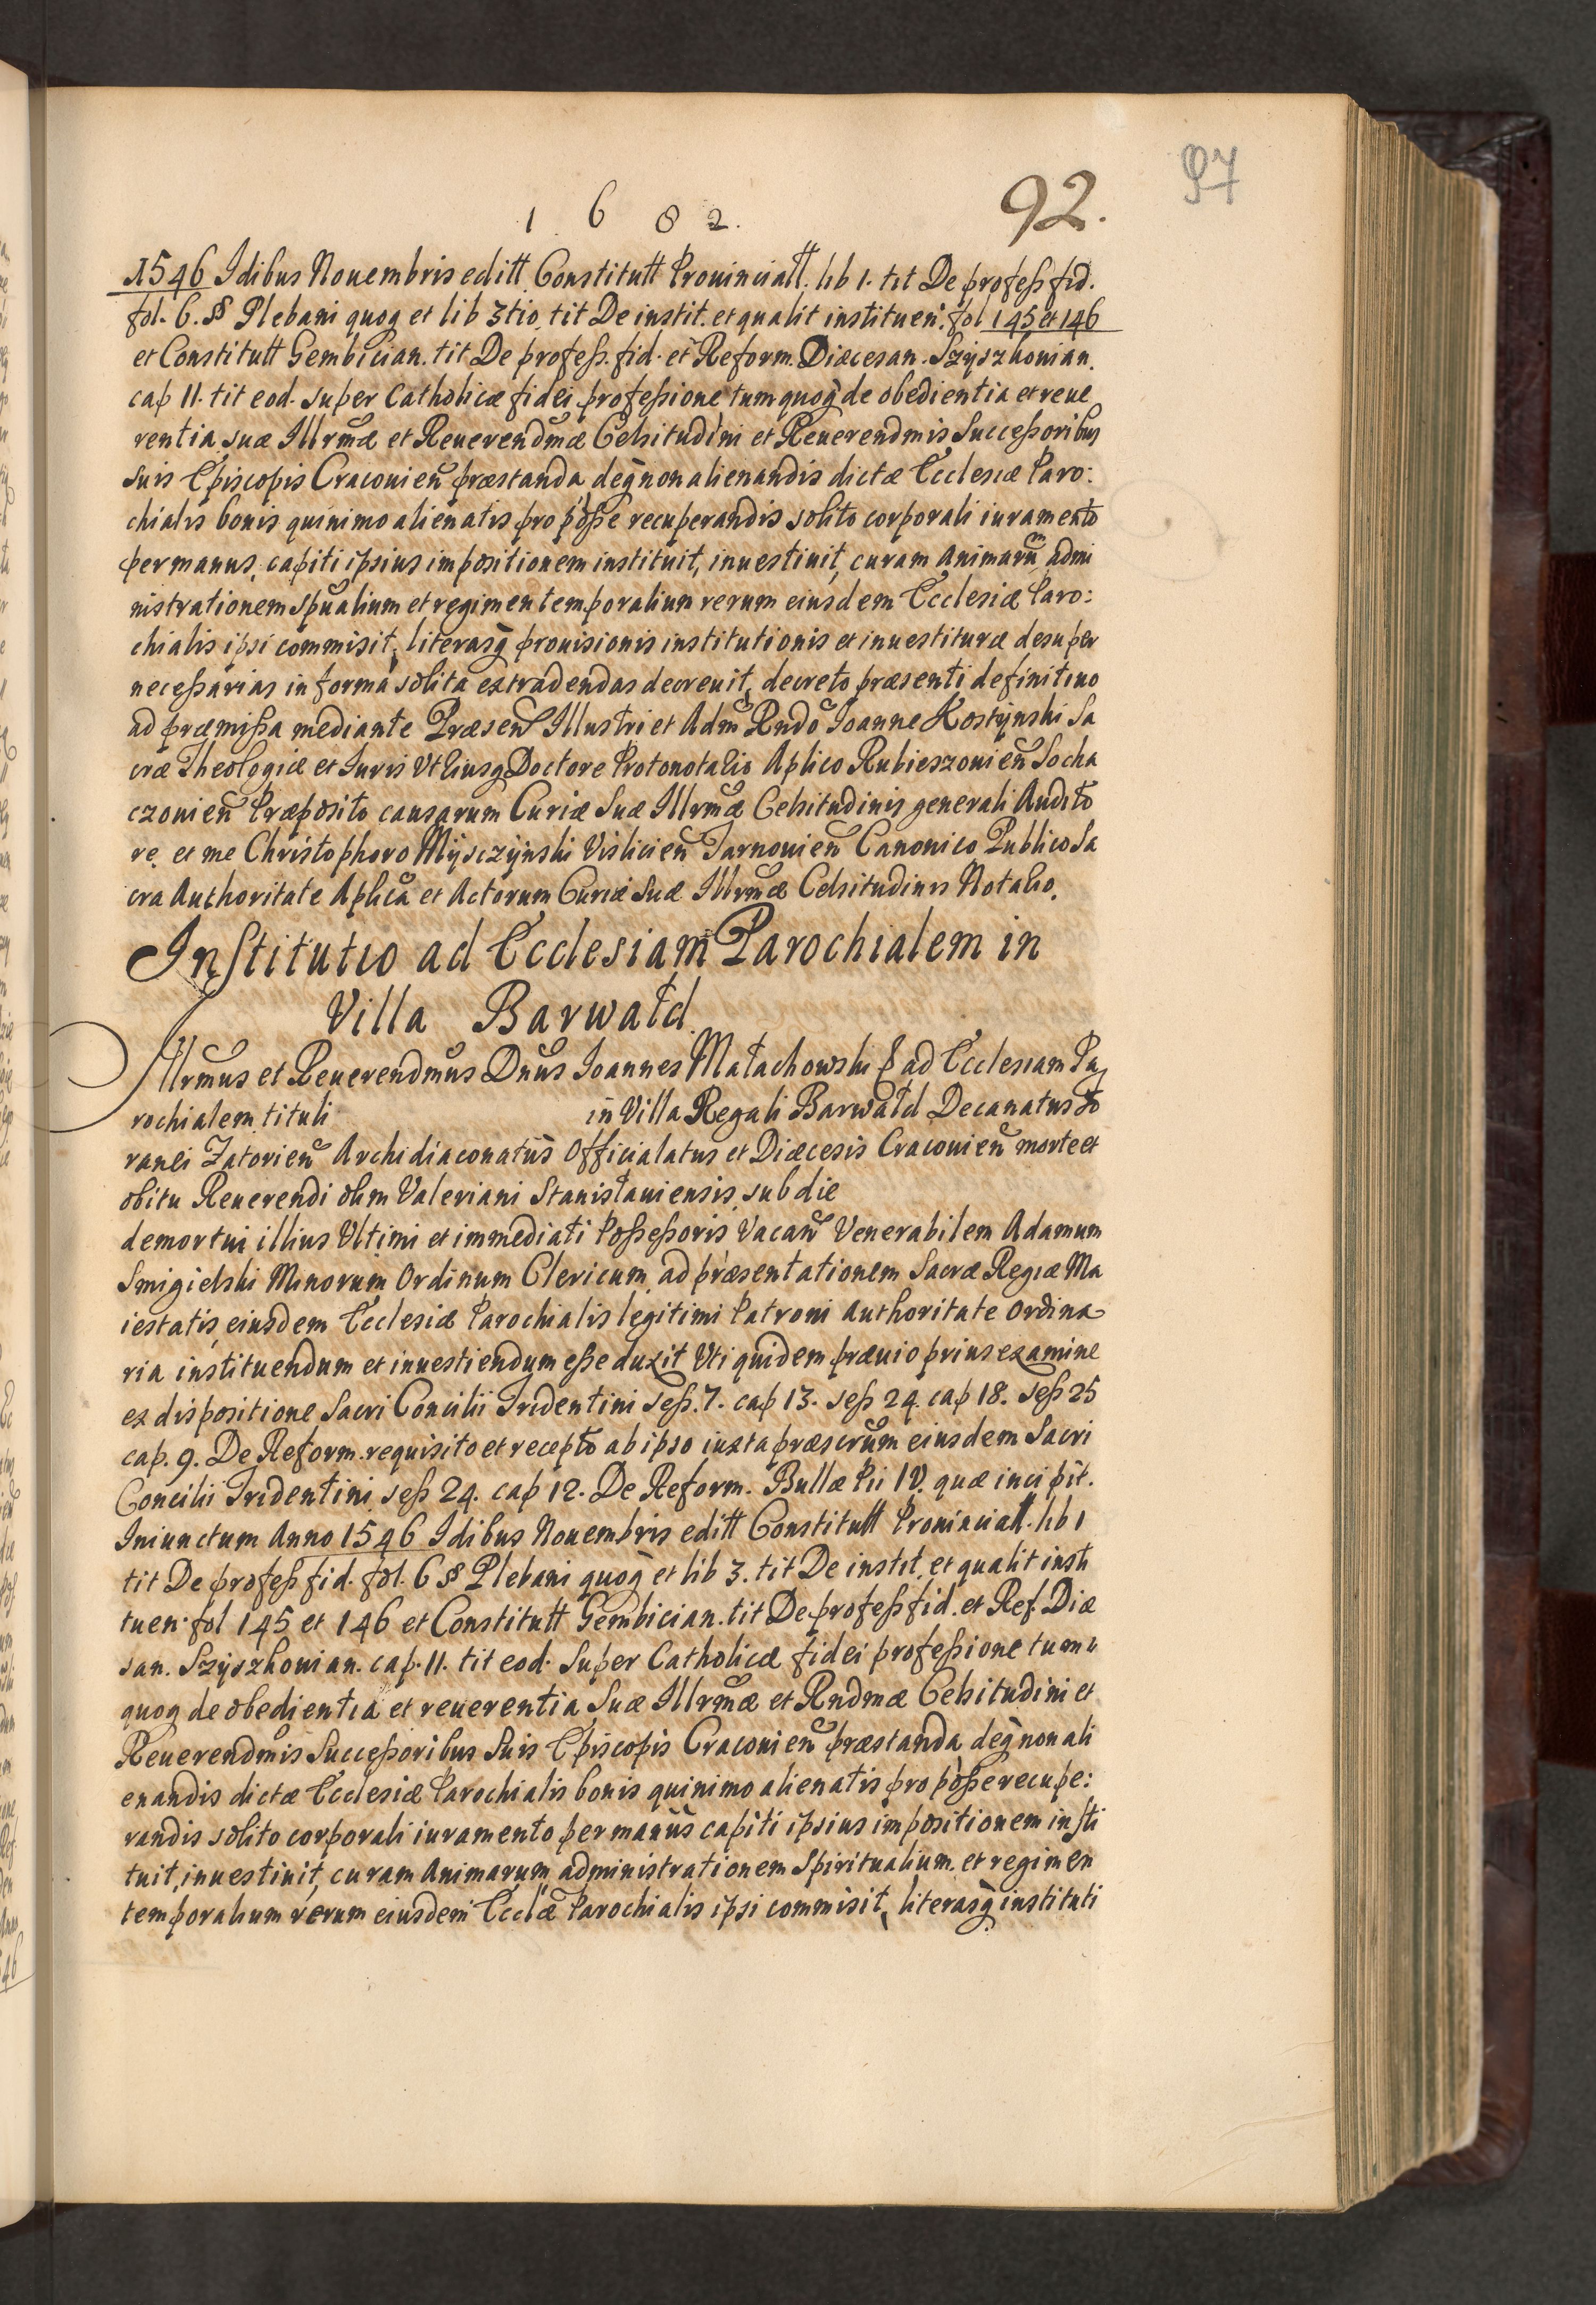 1 6 8 2.
92.
97
1546 Idibus Nouembris editt Constitutt Prouinciatt. lib 1. tit De profeß fid.
fol. 6. § Plebani quoq et lib 3tio tit De instit. et qualit instituen. fol 145 et 146
et Constitutt Gembician. tit De profeß. fid. et Reform. Diæcesan. Szyszkouian.
cap 11. tit eod. super Catholicæ fidei profeßione tum quoq de obedientia et reue
rentia suæ Illrmæ et Reuerendmæ Celsitudini et Reuerendmis Succeßoribus
suis Episcopis Cracouien præstanda, deq non alienandis dictæ Ecclesiæ Paro:
chialis bonis quinimo alienatis pro poße recuperandis solito corporali iuramento
per manus capiti ipsius impositionem instituit, inuestiuit, curam Animaru admi
nistrationem spualium et regimen temporalium rerum eiusdem Ecclesiæ Paro:
chialis ipsi commisit, literasq prouisionis institutionis et inuestituræ desuper
neceßarias in forma solita extradendas decreuit, decreto præsenti definitiuo
ad præmißa mediante Præsen Illustri et Adm Rndo Ioanne Kostynski Sa
cræ Theologiæ et Iuris Vtriusq Doctore Protonotario Aplico Rubieszouien Socha
czouien Præposito causarum Curiæ Suæ Illrmæ Celsitudinis generali Audito
re et me Christophoro Myszczynski Vislicien Tarnouien Canonico Publico Sa
cra Authoritate Aplica et Actorum Curiæ Suæ Illrmæ Celsitudinis Notario.
Institutio ad Ecclesiam Parochialem in
Villa Barwałd
Illrmus et Reuerendmus Dnus Ioannes Małachowski & ad Ecclesiam Pa
rochialem tituli in Villa Regali Barwałd Decanatus fo
ranei Zatorien Archidiaconatus Officialatus et Diæcesis Cracouien morte et
obitu Reuerendi olim Valeriani Stanisłauiensis sub die
demortui illius Vltimi et immediati Poßeßoris Vacan Venerabilem Adamum
Smigielski Minorum Ordinum Clericum ad præsentationem Sacræ Regiæ Ma
iestatis eiusdem Ecclesiæ Parochialis legitimi Patroni Authoritate Ordina
ria instituendum et inuestiendum eße duxit Vti quidem præuio prius examine
ex dispositione Sacri Concilii Tridentini Seß. 7. cap 13. seß 24. cap 18. seß 25
cap. 9. De Reform. requisito et recepto ab ipso iuxta præscrum eiusdem Sacri
Concilii Tridentini seß 24. cap 12. De Reform. Bullæ Pii IV. quæ incipit.
Iniunctum Anno 1546 Idibus Nouembris editt Constitutt Prouinciatt. lib 1
tit De profeß fid. fol. 6 § Plebani quoq et lib 3. tit De instit. et qualit insti
tuen. fol 145 et 146 et Constitutt Gembician. tit De profeß fid. et Ref. Diæ
san. Szyszkouian. cap. 11. tit eod. Super Catholicæ fidei profeßione tum
quoq de obedientia et reuerentia Suæ Illrmæ et Rndmæ Celsitudini et
Reuerendmis Succeßoribus Suis Episcopis Cracouien præstanda deq non ali
enandis dictæ Ecclesiæ Parochialis bonis quinimo alienatis pro poße recupe:
randis solito corporali iuramento per manus capiti ipsius impositionem insti
tuit, inuestiuit, curam Animarum administrationem Spiritualium et regimen
temporalium rerum eiusdem Ecclæ Parochialis ipsi commisit, literasq instituti